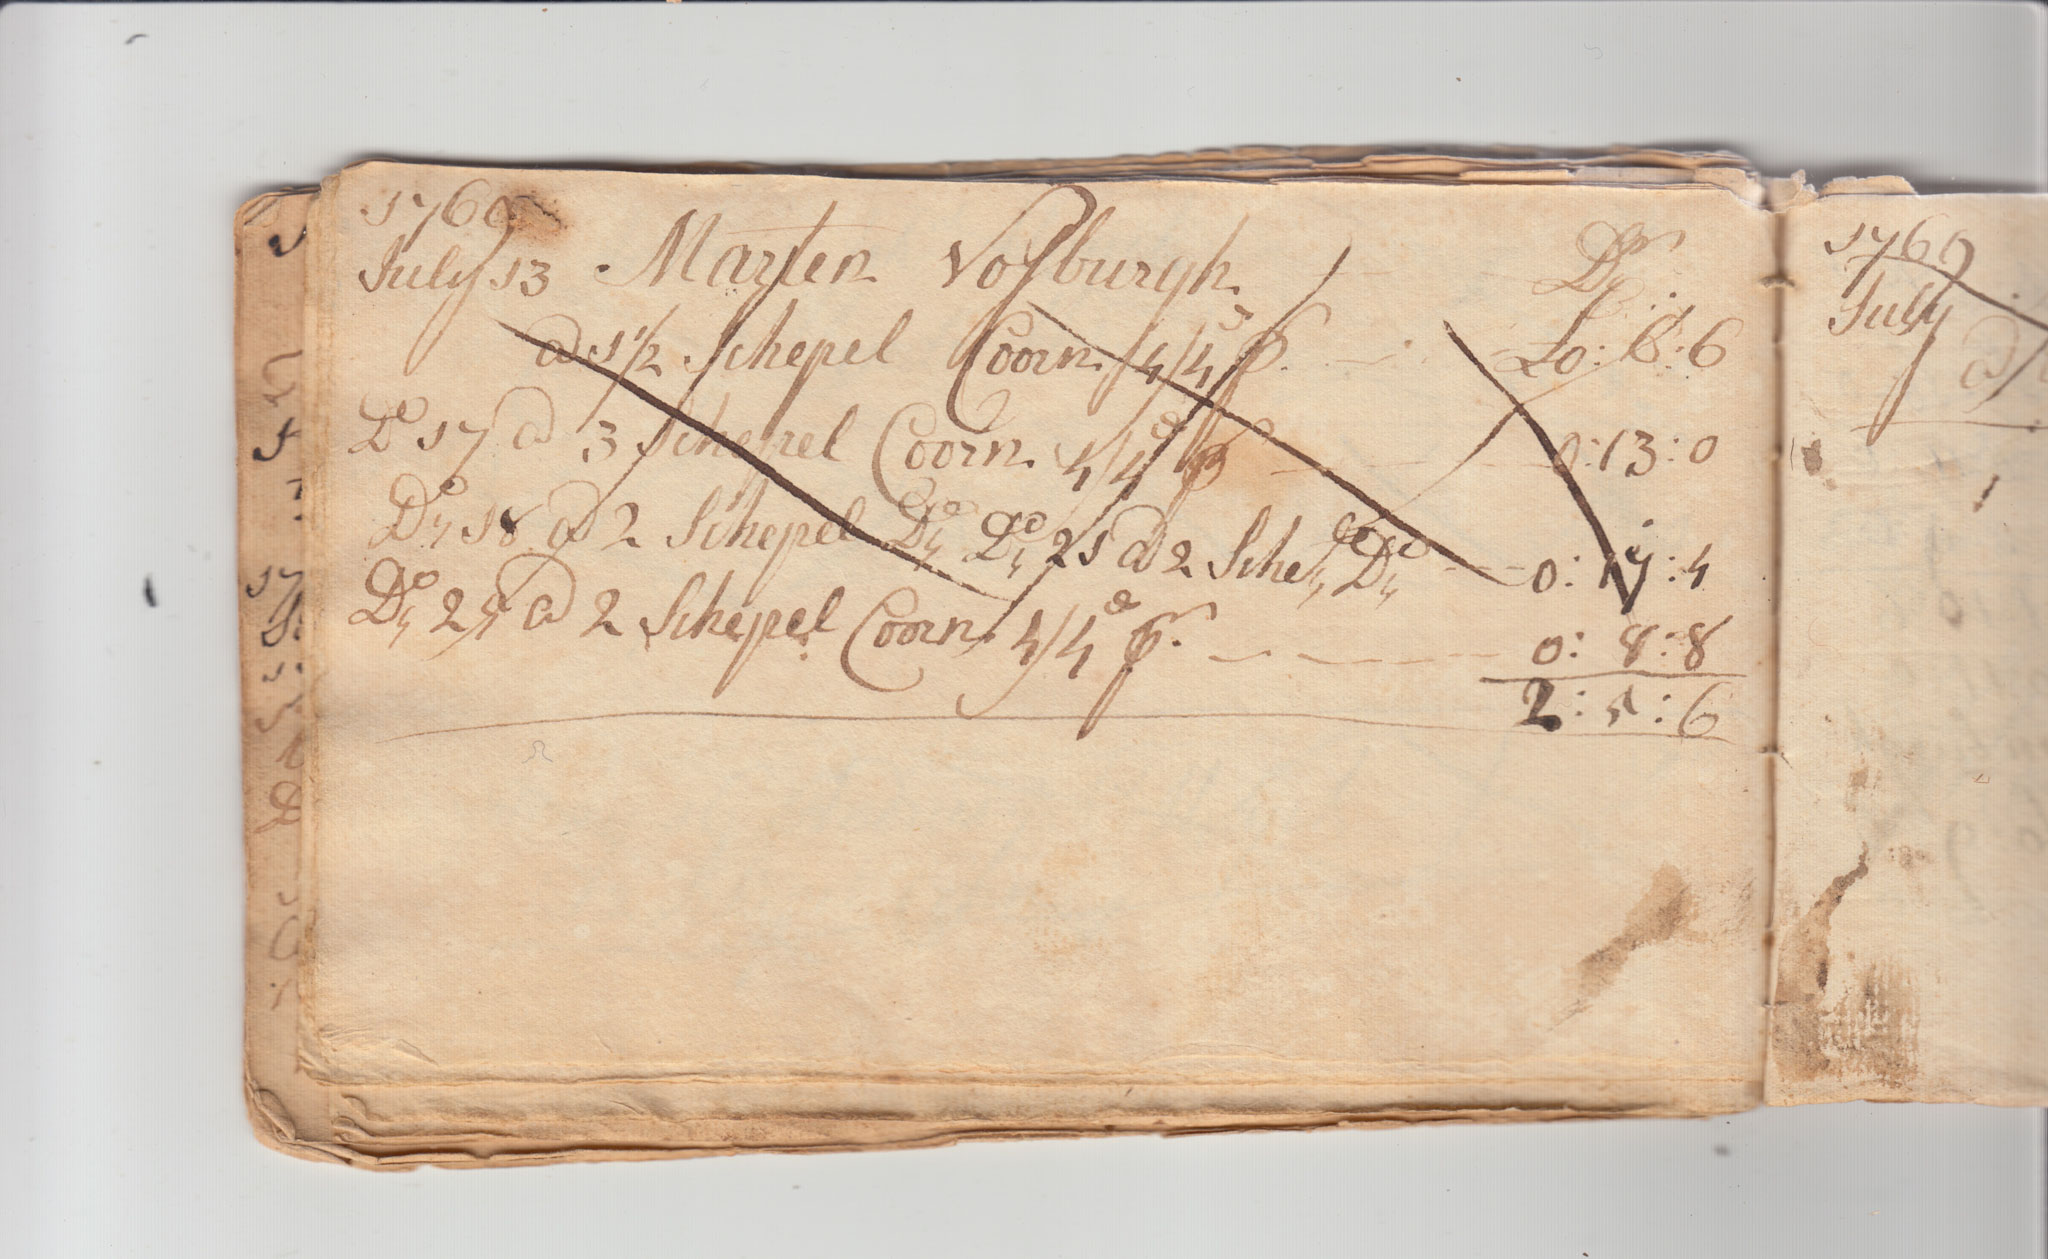 1760
July 13 Marten Vosburgh Dr
a 1 1/2 Schepel Coorn 4/4d p. £0: 6:6
Do 17 a 3 Schepel Coorn 4/4d p 0:13:0
Do 18 a 2 Schepel Do Do 21 a 2 Sche Do 0:17:4
Do 24 a 2 Schepel Coorn 4/4d p. 0: 8:8
2:5:6
1760
July
a